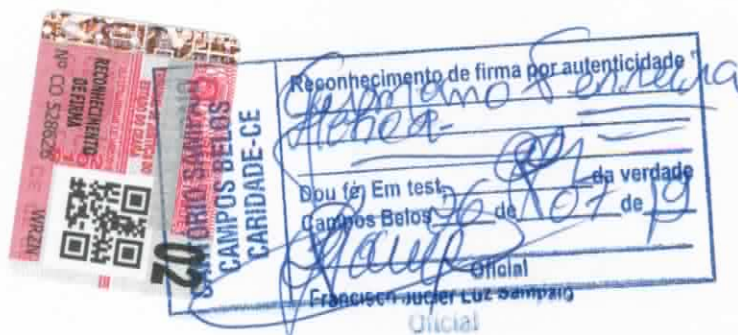 RECONHECIMENTO
DE FIRMA
Nº CO 528626
WRZN
02
CARTÓRIO SAMPAIO
CAMPOS BELOS
CARIDADE-CE
Reconhecimento de firma por autenticidade
Ferreira
Dou fé; Em test. da verdade
Campos Belos 26 de 07 de 19
Oficial
Francisco Jucier Luz Sampaio
Oficial